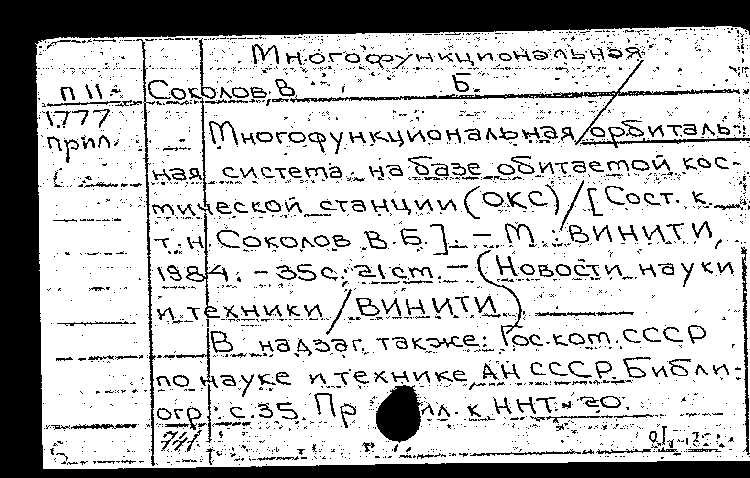 Многофункциональная
П 11- Соколов, В Б.
1777
прил.
Многофункциональная орбиталь-
ная система на базе обитаемой кос-
мической станции (ОКС) / [Сост. к.
т. н. Соколов В. Б.]. - М.: ВИНИТИ,
1984. - 35 с.; 21 см. - (Новости науки
и техники / ВИНИТИ)
В надзаг. также: Гос. ком. СССР
по науке и технике, АН СССР. Библи-
огр.: с. 35. Прил. к ННТ № 20.
741